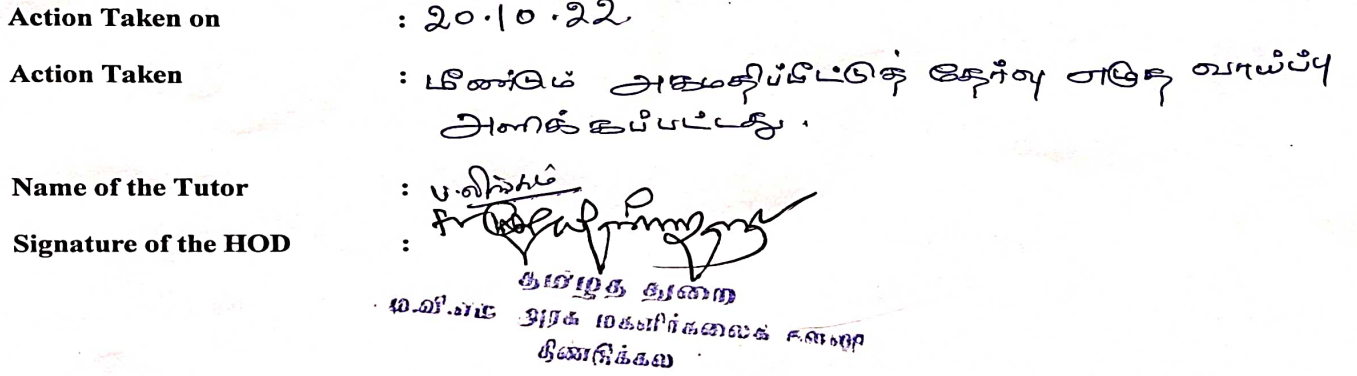 Action Taken on : 20.10.22
Action Taken : மீண்டும் அகமதிப்பீட்டுத் தேர்வு எழுத வாய்ப்பு
அளிக்கப்பட்டது.
Name of the Tutor : ப.லிங்கம்
Signature of the HOD :
தமிழ்த் துறை
ம.வி.மு அரசு மகளிர்கலைக் கல்லூரி
திண்டுக்கல்